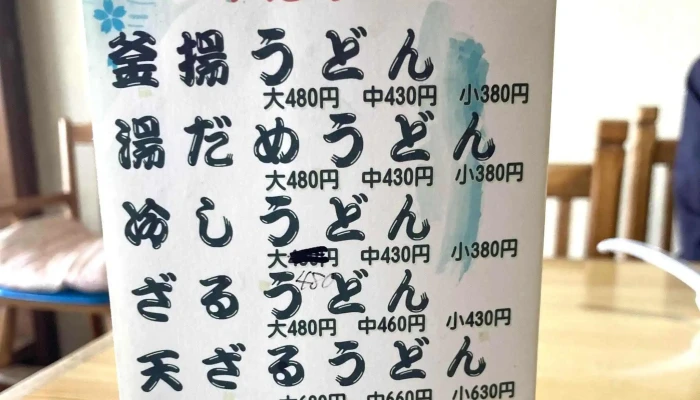 釜揚うどん
大480円 中430円 小380円
湯だめうどん
大480円 中430円 小380円
めしうどん
大 円 中430円 小380円
480
ざるうどん
大480円 中460円 小430円
天ざるうどん
中660円 小630円